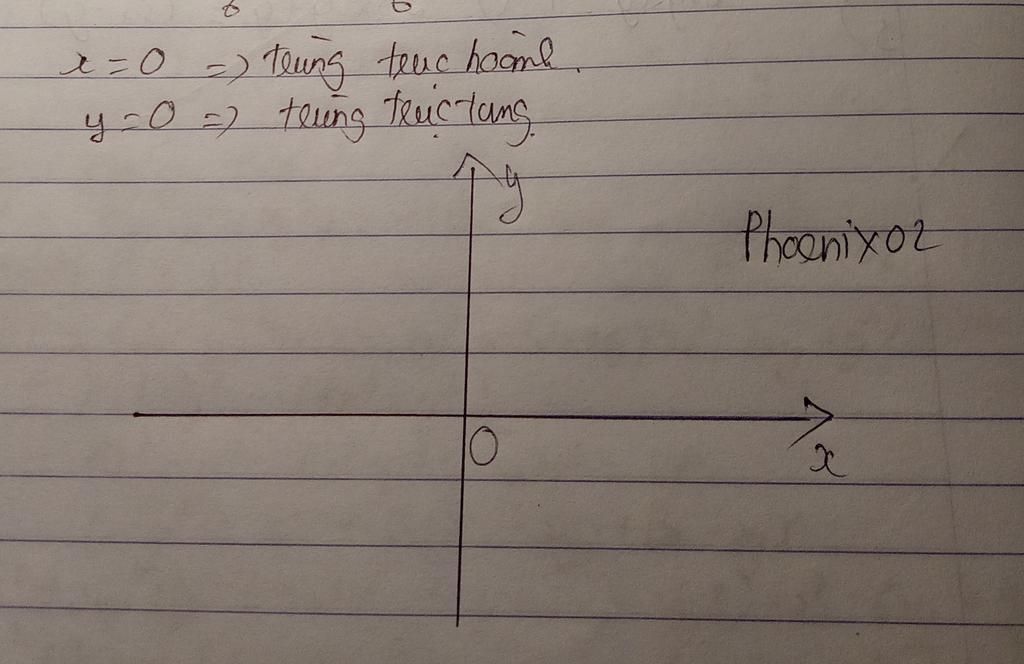 x = 0 => trùng trục hoành.
y = 0 => trùng trục tung.
y
Phoenix02
O
x